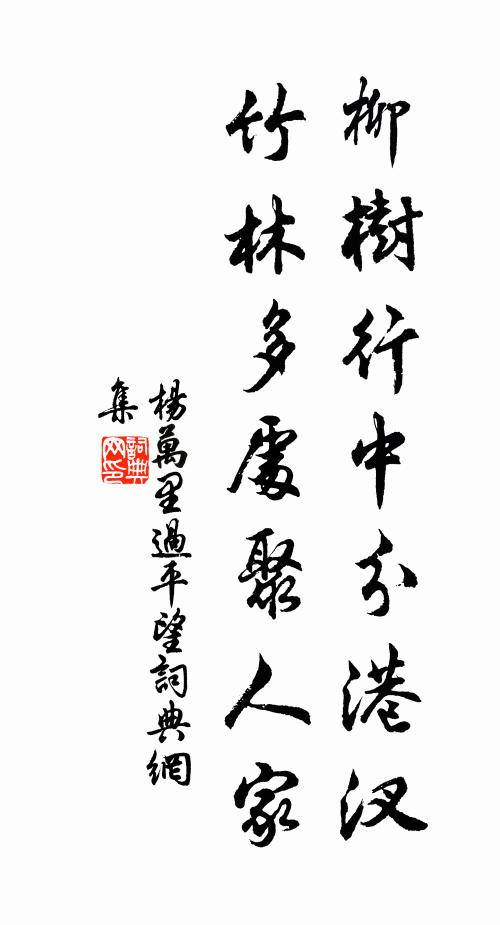 柳樹行中分港汊
竹林多處聚人家
楊萬里過平望詞典網
集
詞典网印